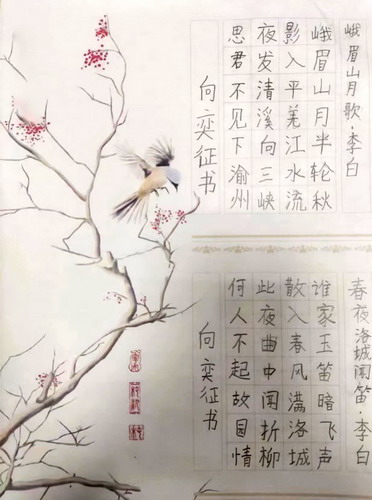 峨眉山月歌·李白
峨眉山月半轮秋
影入平羌江水流
夜发清溪向三峡
思君不见下渝州
向奕征书
春夜洛城闻笛·李白
谁家玉笛暗飞声
散入春风满洛城
此夜曲中闻折柳
何人不起故园情
向奕征书